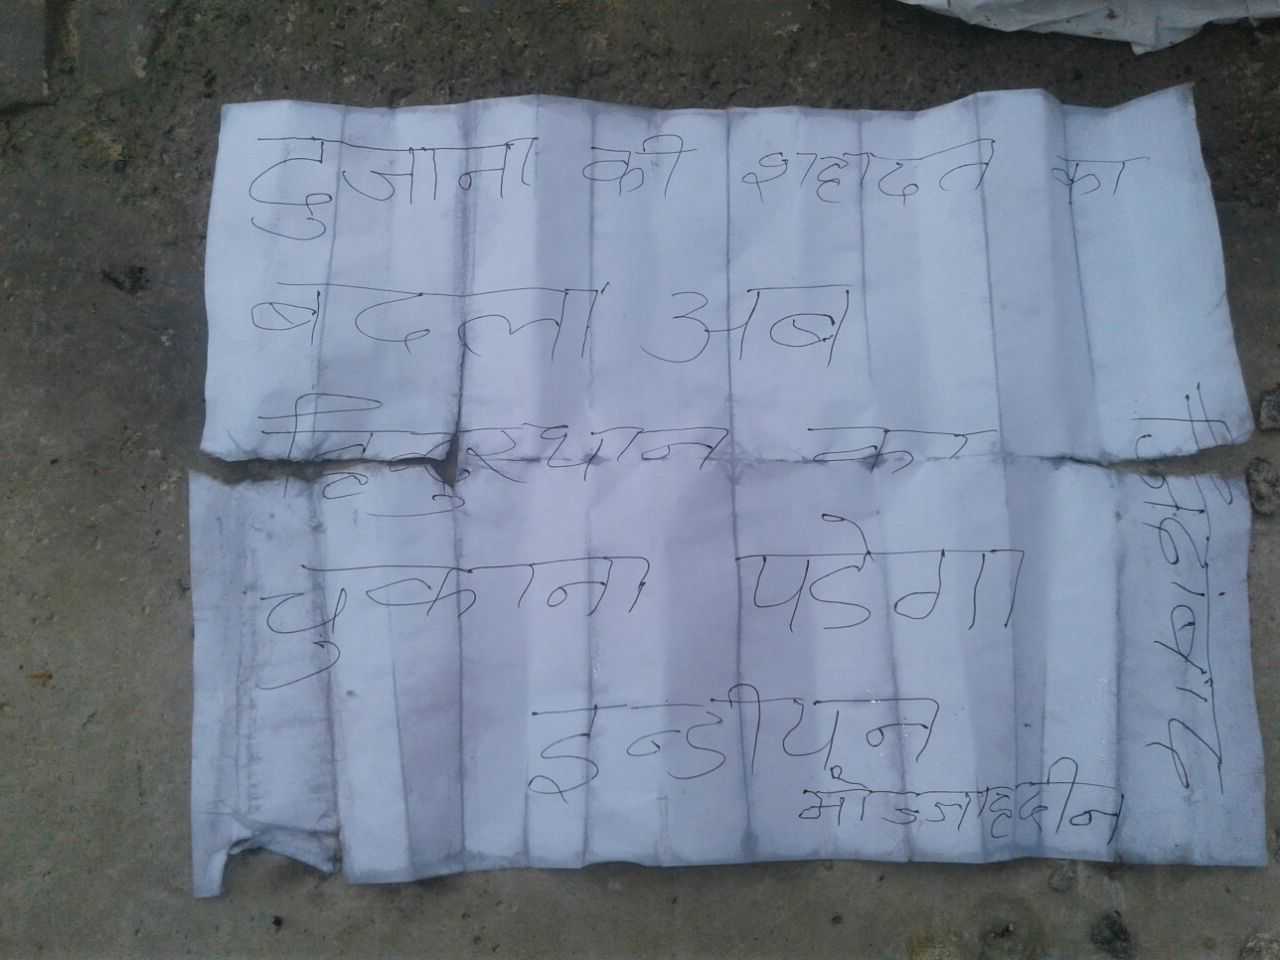 दुजाना की शहादत का
बदला अब
हिन्दुस्थान का
चुकाना पडेगा
इन्डीयन
मोज्जाहदीन